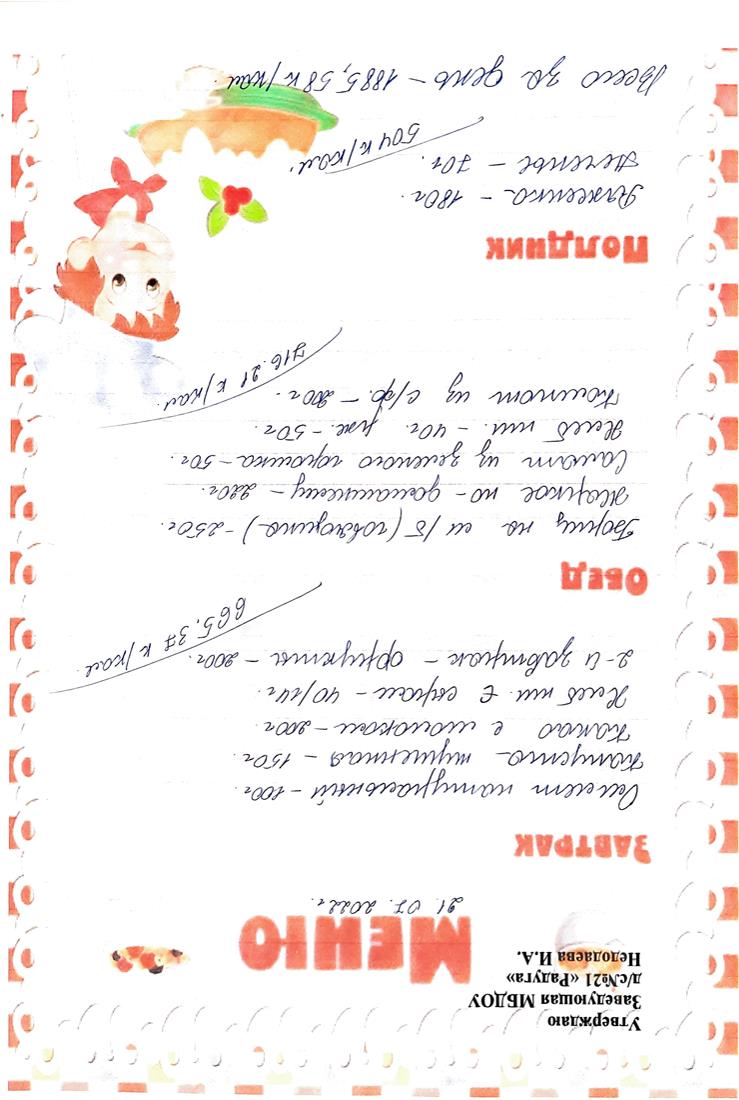 Утверждаю
Заведующая МБДОУ
д/с№21 «Радуга»
Недодаева И.А.
Меню
21. 07. 2022г.
Завтрак
Омлет натуральный - 100г.
Капуста тушенная - 150г
Какао с молоком - 200г
Хлеб пш. с сыром - 40/14г
2-й завтрак - фрукты - 200г.
665,37 к/кал
Обед
Борщ на м/б (говядина) - 250г.
Жаркое по-домашнему - 220г.
Салат из зеленого горошка - 50г.
Хлеб пш. - 40г. рж. - 50г.
Компот из с/фр. - 200г.
716.21 к/кал
Полдник
Ряженка - 180г.
Печенье - 70г.
504 к/кал.
Всего за день - 1885,58 к/кал